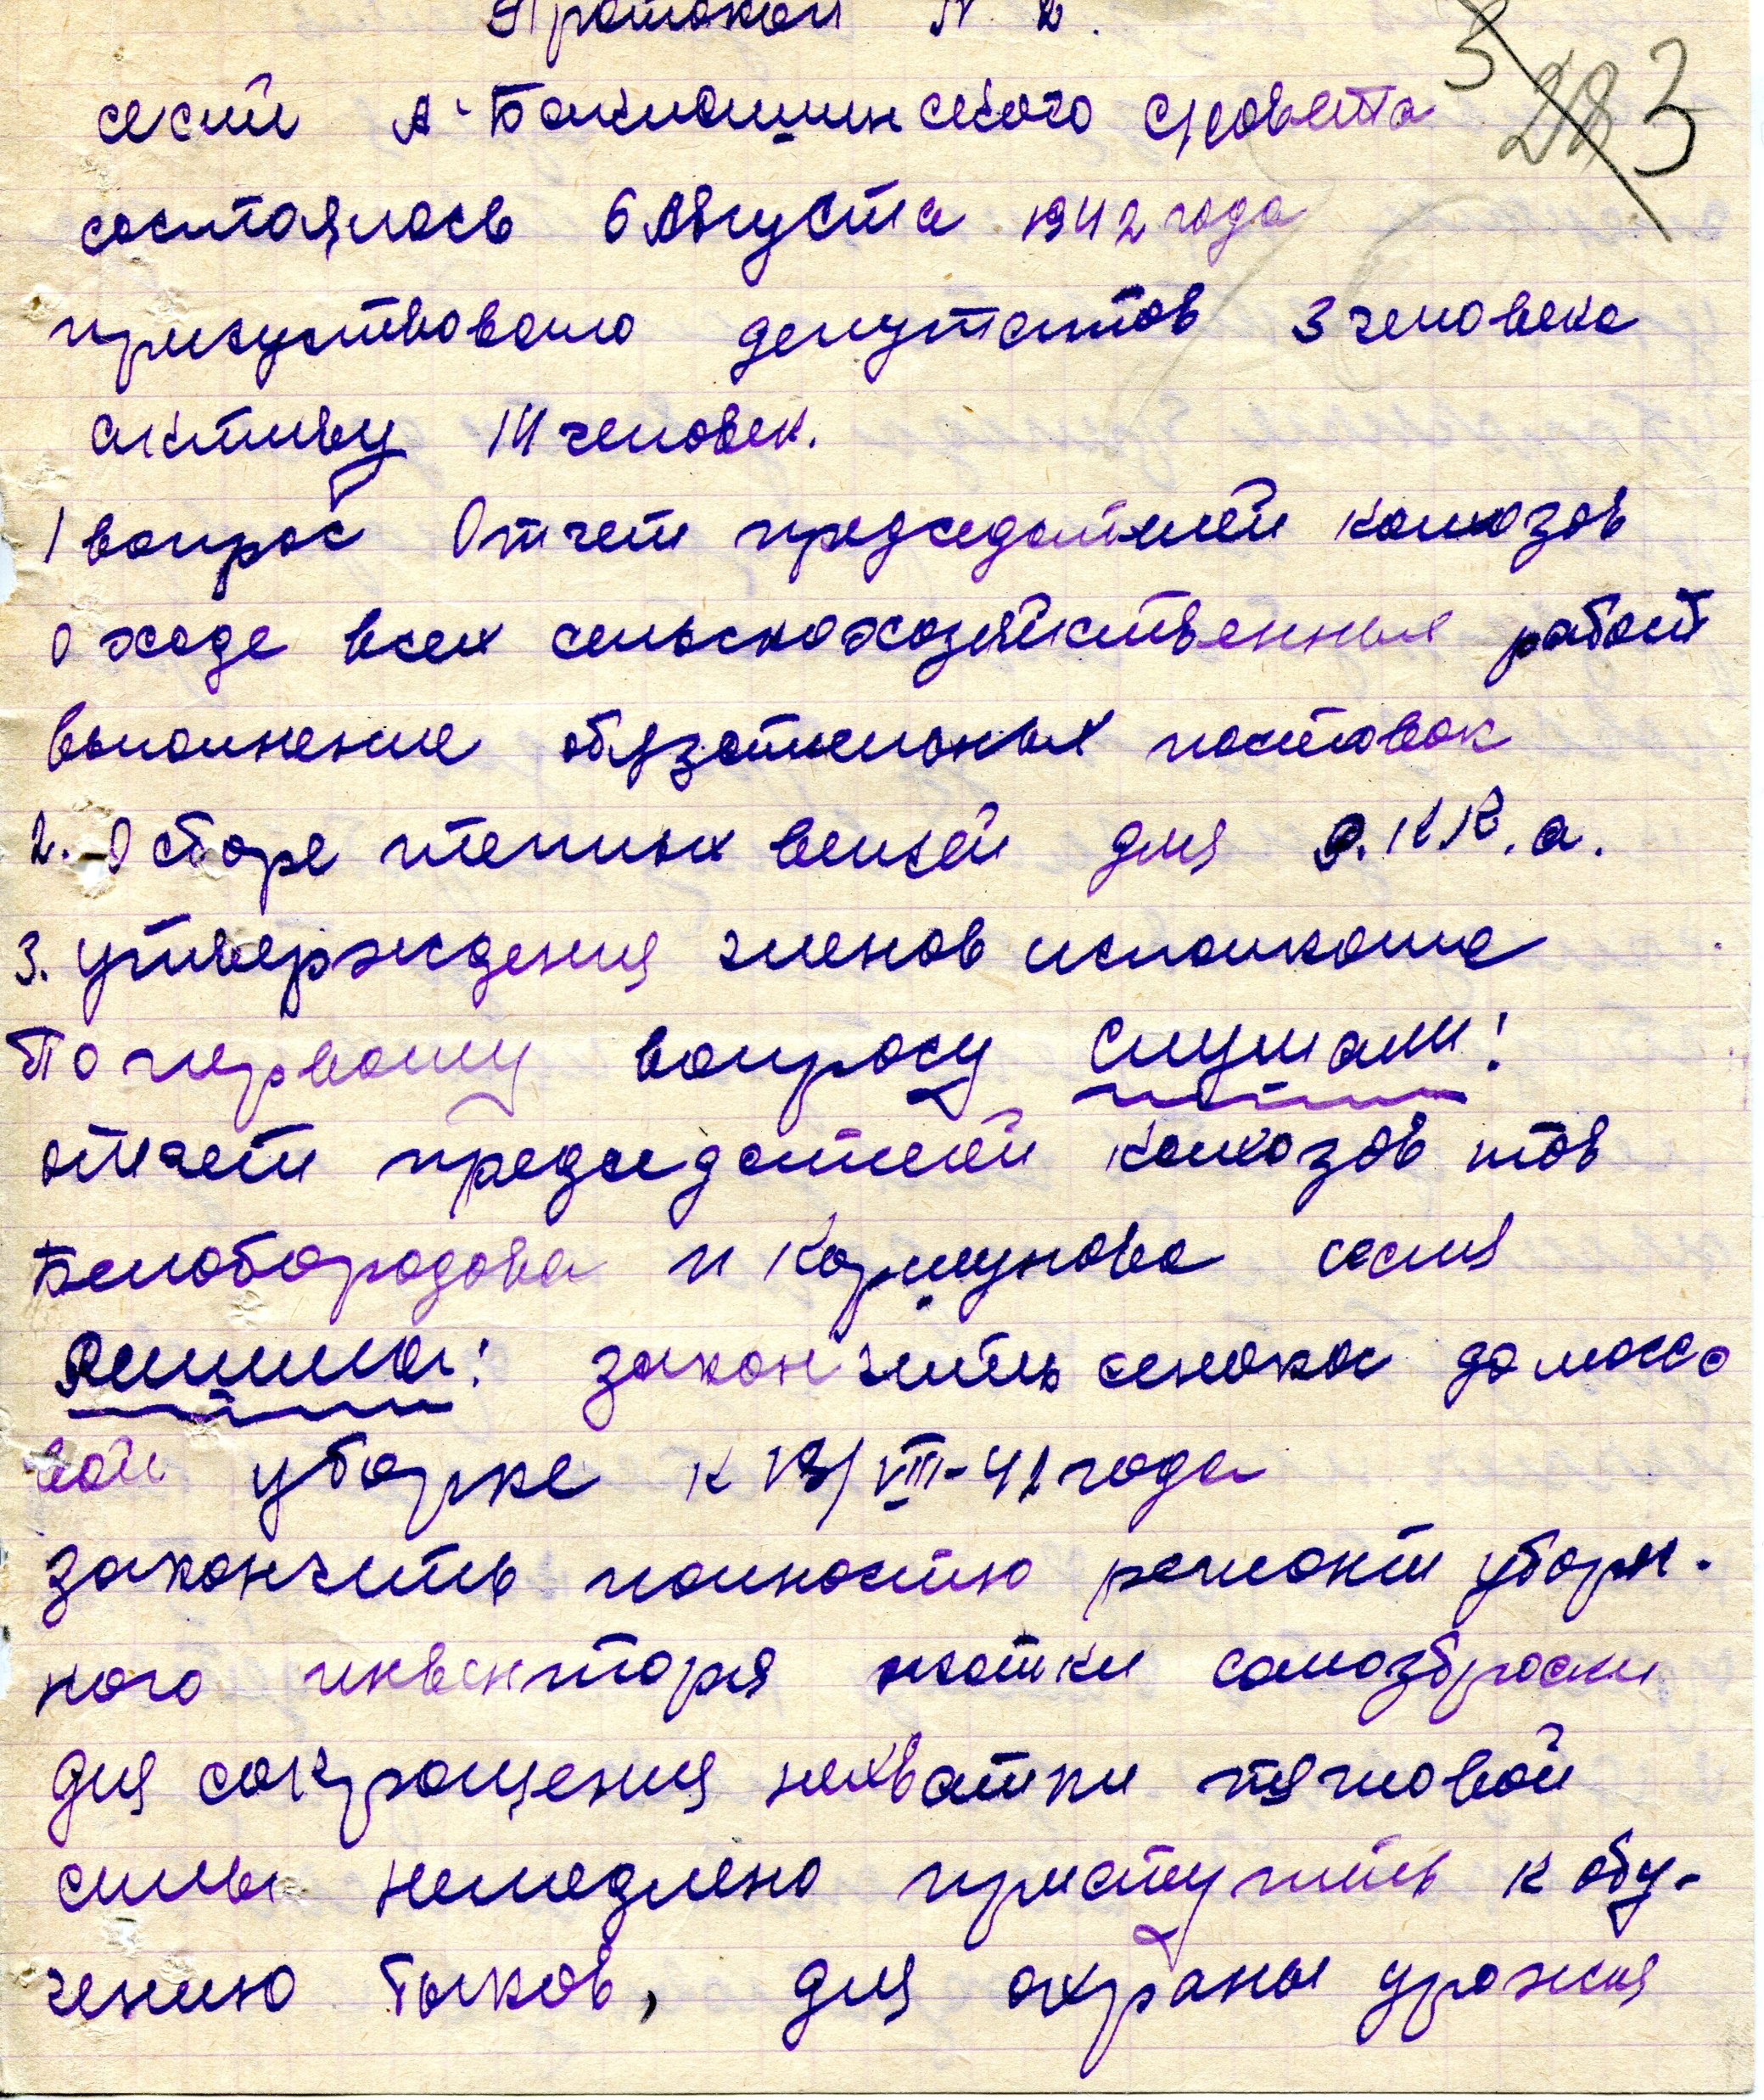 Протокол N 2.
сесии А-Баклашинского с/совета
состоялось 6 Августа 1942 года
присуствовало депутатов 3 человека
активу 14 человек.
1 вопрос Отчет председателей колхозов
о ходе всех сельскохозяйственных работ
выполнение обязательных поставок
2. О сборе теплых вещей для Р.К.К.а.
3. Утверждения членов исполкома
По первому вопросу Слушали!
отчет председателей колхозов тов
Белобородова и Коршунова сесия
Решила: закончить сенокос до массо
вой уборке к /VIII-42 года
закончить полностью ремонт уборч.
ного инвенторя жатки самозброски
для сокращения нехватки тягловой
силы немедлено приступить к обу-
чению быков, для охраны урожия
3 283